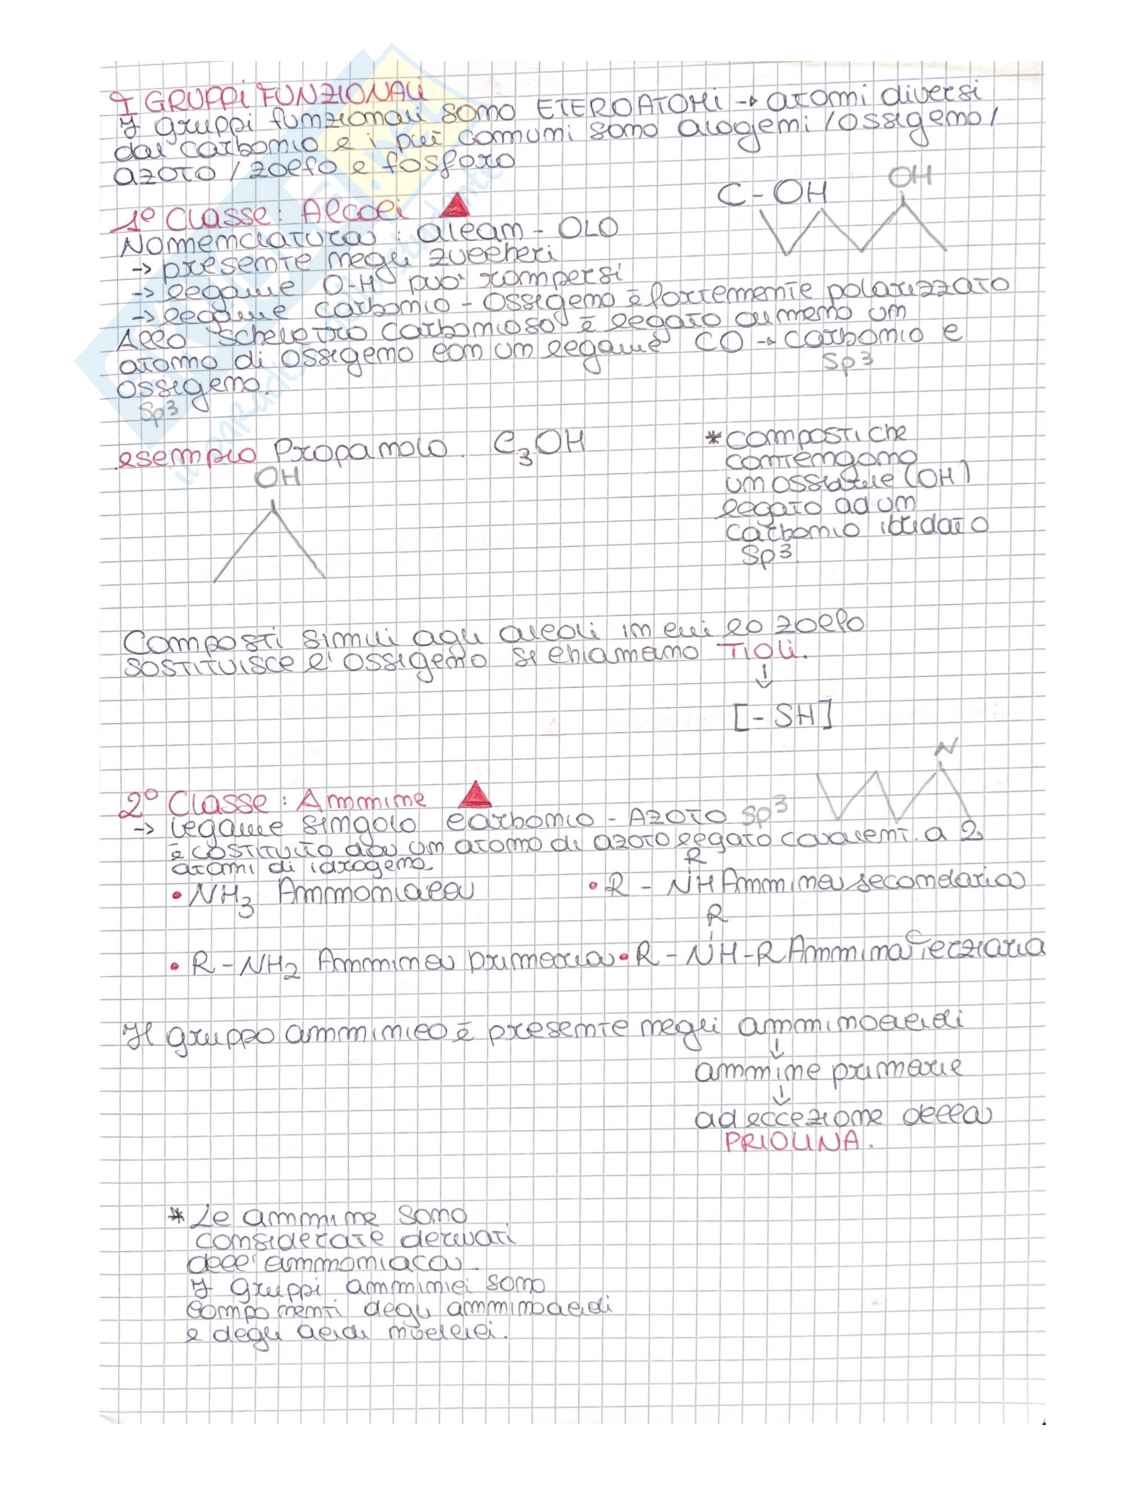 I GRUPPI FUNZIONALI
I gruppi funzionali sono ETEROATOMI → atomi diversi
dal carbonio e i più comuni sono alogeni / ossigeno /
azoto / zolfo e fosforo
C - OH
OH
1° Classe: Alcoli
Nomenclatura: alcan - OLO
→ presente negli zuccheri
→ legame O-H può rompersi
→ legame carbonio - ossigeno è fortemente polarizzato
Allo scheletro carbonioso è legato almeno un
atomo di ossigeno con un legame CO → carbonio e
sp3
ossigeno.
sp3
esempio Propanolo. C3OH
OH
* composti che
contengono
un ossidrile (OH)
legato ad un
carbonio ibridato
sp3
Composti simili agli alcoli in cui lo zolfo
sostituisce l'ossigeno si chiamano TIOLI.
↓
[- SH]
N
2° Classe: Ammine
→ legame singolo carbonio - AZOTO sp3
è costituito da un atomo di azoto legato covalent. a 2
atomi di idrogeno.
• NH3 Ammoniaca
R
• R - NH Ammina secondaria
• R - NH2 Ammina primaria
R
• R - NH - R Ammina terziaria
Il gruppo amminico è presente negli amminoacidi
↓
ammine primarie
↓
ad eccezione della
PRIOLINA.
* Le ammine sono
considerate derivati
dell'ammoniaca.
I gruppi amminici sono
componenti degli amminoacidi
e degli acidi nucleici.